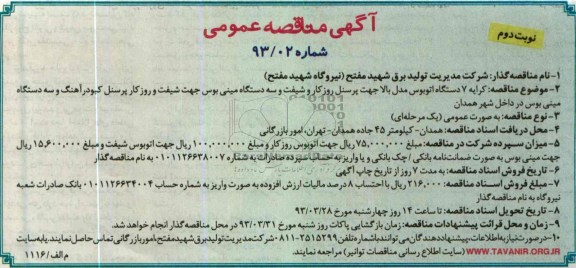 آگهی مناقصه عمومی
نوبت دوم
شماره ۹۳/۰۲
۱-نام مناقصه گذار: شرکت مدیریت تولید برق شهید مفتح (نیروگاه شهید مفتح)
۲-موضوع مناقصه: کرایه ۷ دستگاه اتوبوس مدل بالا جهت پرسنل روز کار و شیفت و سه دستگاه مینی بوس جهت شیفت و روز کار پرسنل کبودرآهنگ و سه دستگاه
مینی بوس در داخل شهر همدان
۳- نوع مناقصه: به صورت عمومی (یک مرحله‌ای)
۴- محل دریافت اسناد مناقصه: همدان- کیلومتر ۴۵ جاده همدان- تهران، امور بازرگانی
۵-میزان سپرده شرکت در مناقصه: ۷۵,۰۰۰,۰۰۰ ریال جهت اتوبوس روز کار و مبلغ ۱۰۰,۰۰۰,۰۰۰ ریال جهت اتوبوس شیفت و مبلغ ۱۵,۶۰۰,۰۰۰ ریال
جهت مینی بوس به صورت ضمانت‌نامه بانکی / چک بانکی و یا واریز به حساب سپرده صادرات به شماره ۰۱۰۱۱۲۶۶۳۸۰۰۷ به نام مناقصه گذار
۶- تاریخ فروش اسناد مناقصه: به مدت ۷ روز از تاریخ چاپ آگهی
۷-مبلغ فروش اسناد مناقصه: ۲۱۶,۰۰۰ ریال با احتساب ۸ درصد مالیات ارزش افزوده به صورت واریز به شماره حساب ۰۱۰۱۱۲۶۶۳۴۰۰۴ بانک صادرات شعبه
نیروگاه به نام مناقصه گذار
۸- تاریخ تحویل اسناد مناقصه: تا ساعت ۱۴ روز چهارشنبه مورخ ۹۳/۰۳/۲۸
۹- زمان و محل قرائت پیشنهادات مناقصه: زمان بازگشایی پاکات روز شنبه مورخ ۹۳/۰۳/۳۱ در محل مناقصه گذار انجام خواهد شد.
۱۰-در صورت نیاز به اطلاعات، پیشنهاد دهندگان می‌توانند با شماره تلفن ۲۵۱۵۲۹۹-۰۸۱۱ شرکت مدیریت تولید برق شهید مفتح، امور بازرگانی تماس حاصل نمایند. یا به سایت
WWW.TAVANIR.ORG.IR (سایت اطلاع رسانی مناقصات توانیر) مراجعه نمایند.
م الف/۱۱۱۶